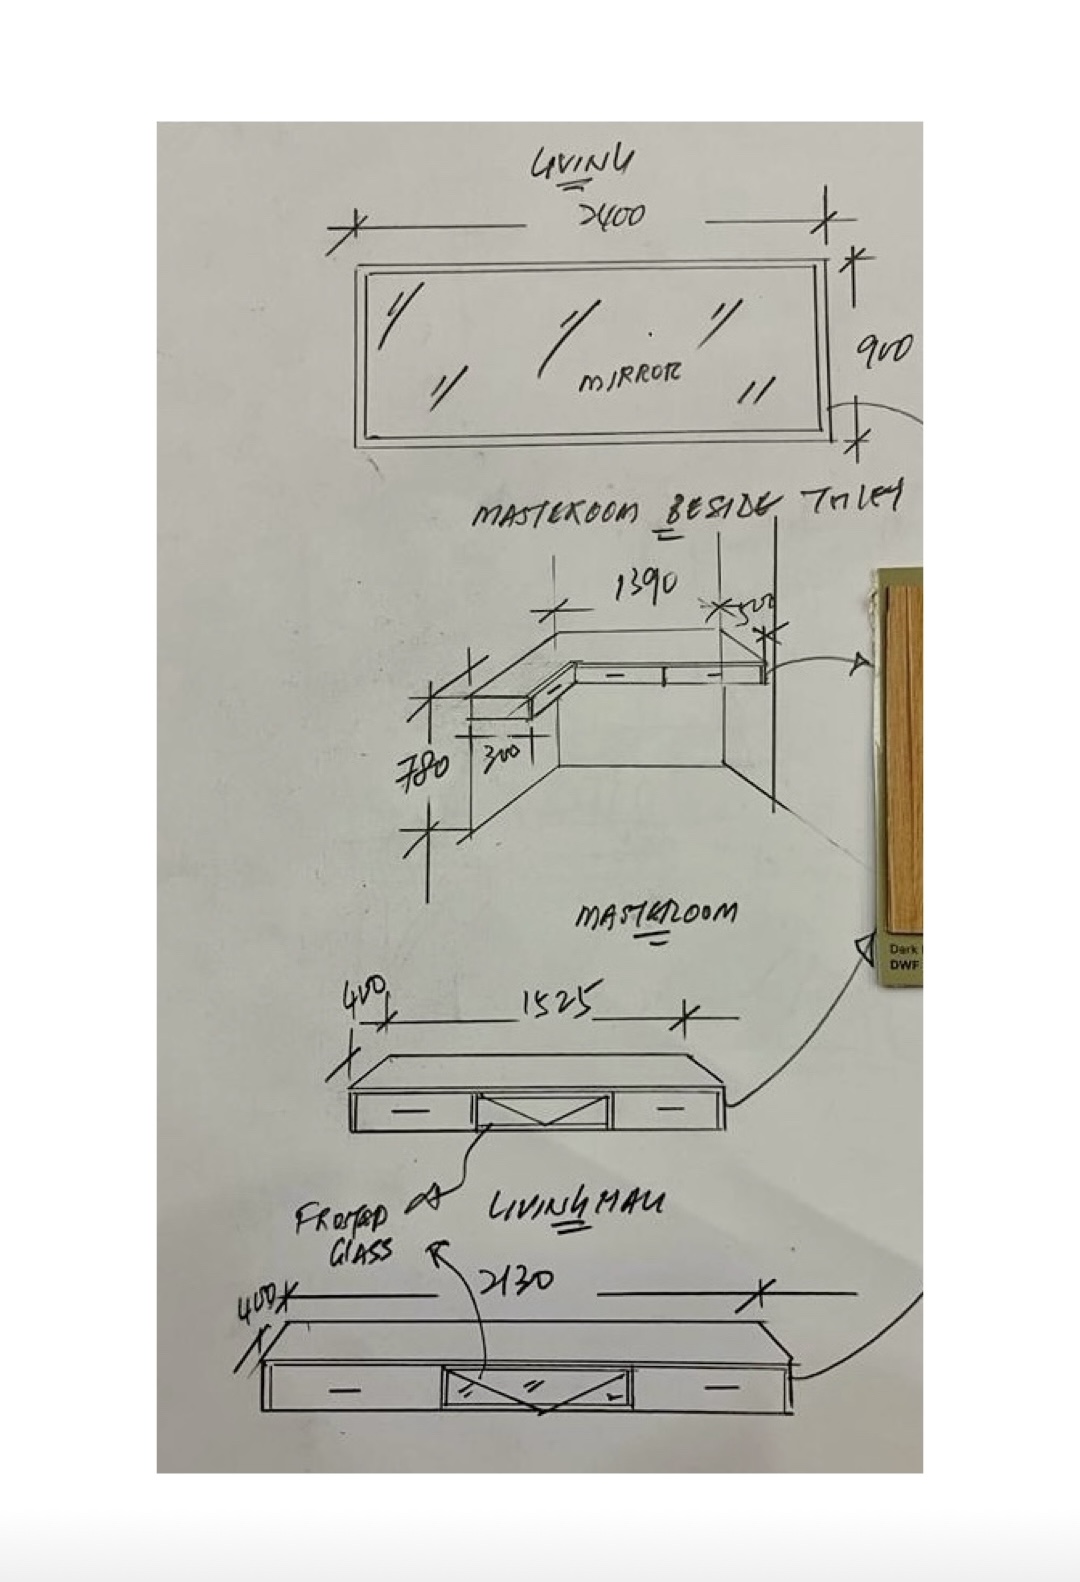 LIVING
2400
900
MIRROR
MASTEROOM BESIDE TOILET
1390
500
780
300
Dark
DWF
MASTEROOM
400
1525
FROSTED
GLASS
LIVING HALL
2130
400